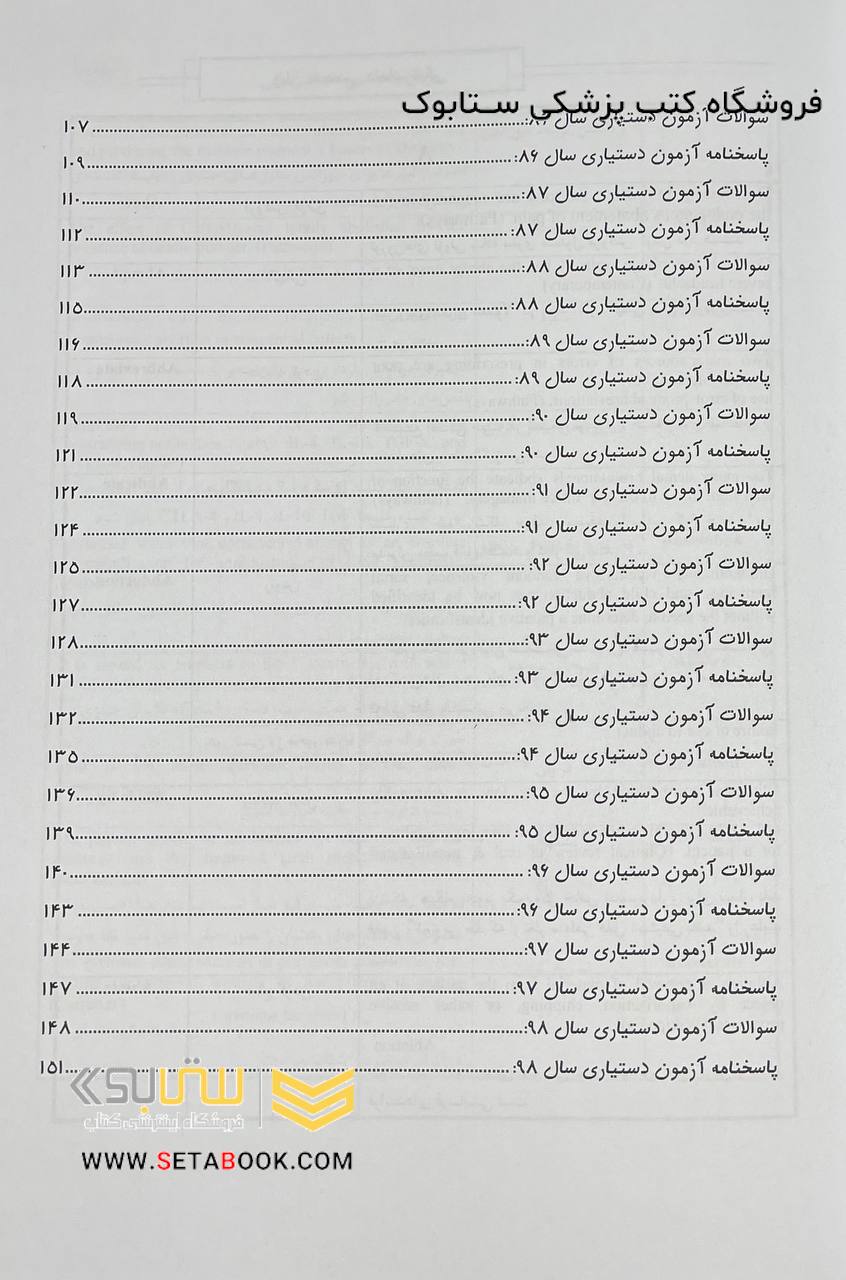 فروشگاه کتب پزشکی ســتابوک
سوالات آزمون دستیاری سال ۸۶:........۱۰۷
پاسخنامه آزمون دستیاری سال ۸۶:........۱۰۹
سوالات آزمون دستیاری سال ۸۷:........۱۱۰
پاسخنامه آزمون دستیاری سال ۸۷:........۱۱۲
سوالات آزمون دستیاری سال ۸۸:........۱۱۳
پاسخنامه آزمون دستیاری سال ۸۸:........۱۱۵
سوالات آزمون دستیاری سال ۸۹:........۱۱۶
پاسخنامه آزمون دستیاری سال ۸۹:........۱۱۸
سوالات آزمون دستیاری سال ۹۰:........۱۱۹
پاسخنامه آزمون دستیاری سال ۹۰:........۱۲۱
سوالات آزمون دستیاری سال ۹۱:........۱۲۲
پاسخنامه آزمون دستیاری سال ۹۱:........۱۲۴
سوالات آزمون دستیاری سال ۹۲:........۱۲۵
پاسخنامه آزمون دستیاری سال ۹۲:........۱۲۷
سوالات آزمون دستیاری سال ۹۳:........۱۲۸
پاسخنامه آزمون دستیاری سال ۹۳:........۱۳۱
سوالات آزمون دستیاری سال ۹۴:........۱۳۲
پاسخنامه آزمون دستیاری سال ۹۴:........۱۳۵
سوالات آزمون دستیاری سال ۹۵:........۱۳۶
پاسخنامه آزمون دستیاری سال ۹۵:........۱۳۹
سوالات آزمون دستیاری سال ۹۶:........۱۴۰
پاسخنامه آزمون دستیاری سال ۹۶:........۱۴۳
سوالات آزمون دستیاری سال ۹۷:........۱۴۴
پاسخنامه آزمون دستیاری سال ۹۷:........۱۴۷
سوالات آزمون دستیاری سال ۹۸:........۱۴۸
پاسخنامه آزمون دستیاری سال ۹۸:........۱۵۱
ستابوک
فروشگاه اینترنتی کتاب
WWW.SETABOOK.COM